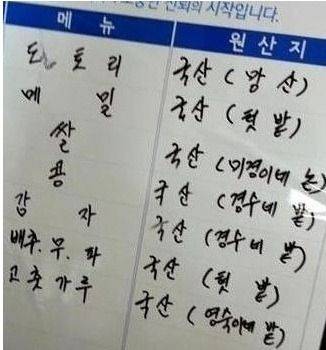 신뢰의 시작입니다.
메뉴 원산지
도토리 국산 (앞산)
메밀 국산 (텃밭)
쌀 국산 (미경이네 논)
콩 국산 (경수네 밭)
감자 국산 (경수네 밭)
배추.무.파 국산 (텃밭)
고춧가루 국산 (영숙이네 밭)